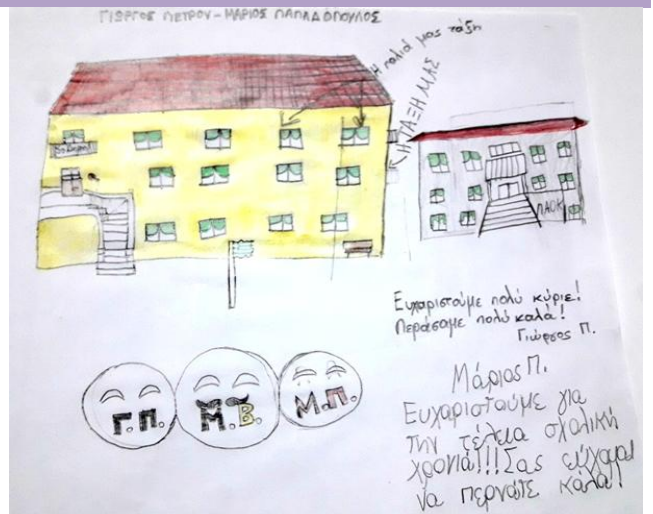 ΓΙΩΡΓΟΣ ΠΕΤΡΟΥ - ΜΑΡΙΟΣ ΠΑΠΑΔΟΠΟΥΛΟΣ
Η παλιά μας τάξη
Η ΤΑΞΗ ΜΑΣ
ΠΑΟΚ
Ευχαριστούμε πολύ κύριε!
Περάσαμε πολύ καλά!
Γιώργος Π.
Γ.Π.
Μ.Β.
Μ.Π.
Μάριος Π.
Ευχαριστούμε για
την τέλεια σχολική
χρονιά!!! Σας εύχομαι
να περνάτε καλά!